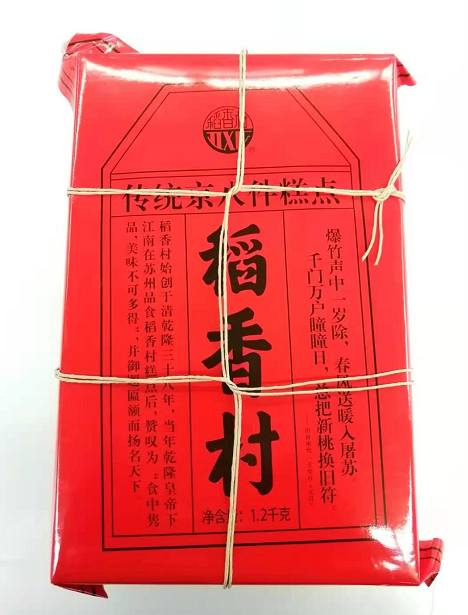 稻香村
传统京八件糕点
爆竹声中一岁除，春风送暖入屠苏
千门万户瞳瞳日，总把新桃换旧符。
稻香村
稻香村始创于清乾隆三十八年，当年乾隆皇帝下
江南在苏州品食稻香村糕点后，赞叹为“食中隽
品，美味不可多得”，并御题匾额而扬名天下。
净含量：1.2千克